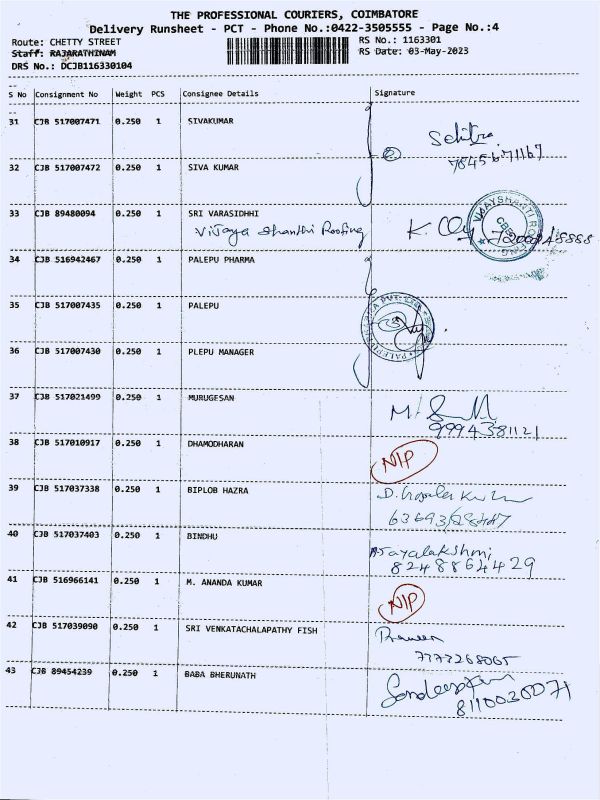 THE PROFESSIONAL COURIERS, COIMBATORE
Delivery Runsheet - PCT - Phone No.:0422-3505555 - Page No.:4
Route: CHETTY STREET RS No.: 1163301
Staff: RAJARATHINAM RS Date: 03-May-2023
DRS No.: DCJB116330104
S No Consignment No Weight PCS Consignee Details Signature
31 CJB 517007471 0.250 1 SIVAKUMAR
32 CJB 517007472 0.250 1 SIVA KUMAR
33 CJB 89480094 0.250 1 SRI VARASIDHHI
Vijaya Shanthi Roofing
VIJAYSHANTI ROOFING
34 CJB 516942467 0.250 1 PALEPU PHARMA
35 CJB 517007435 0.250 1 PALEPU
36 CJB 517007430 0.250 1 PLEPU MANAGER
37 CJB 517021499 0.250 1 MURUGESAN
9994381121
38 CJB 517010917 0.250 1 DHAMODHARAN NIP
39 CJB 517037338 0.250 1 BIPLOB HAZRA
40 CJB 517037403 0.250 1 BINDHU
8248864429
41 CJB 516966141 0.250 1 M. ANANDA KUMAR NIP
42 CJB 517039090 0.250 1 SRI VENKATACHALAPATHY FISH
43 CJB 89454239 0.250 1 BABA BHERUNATH